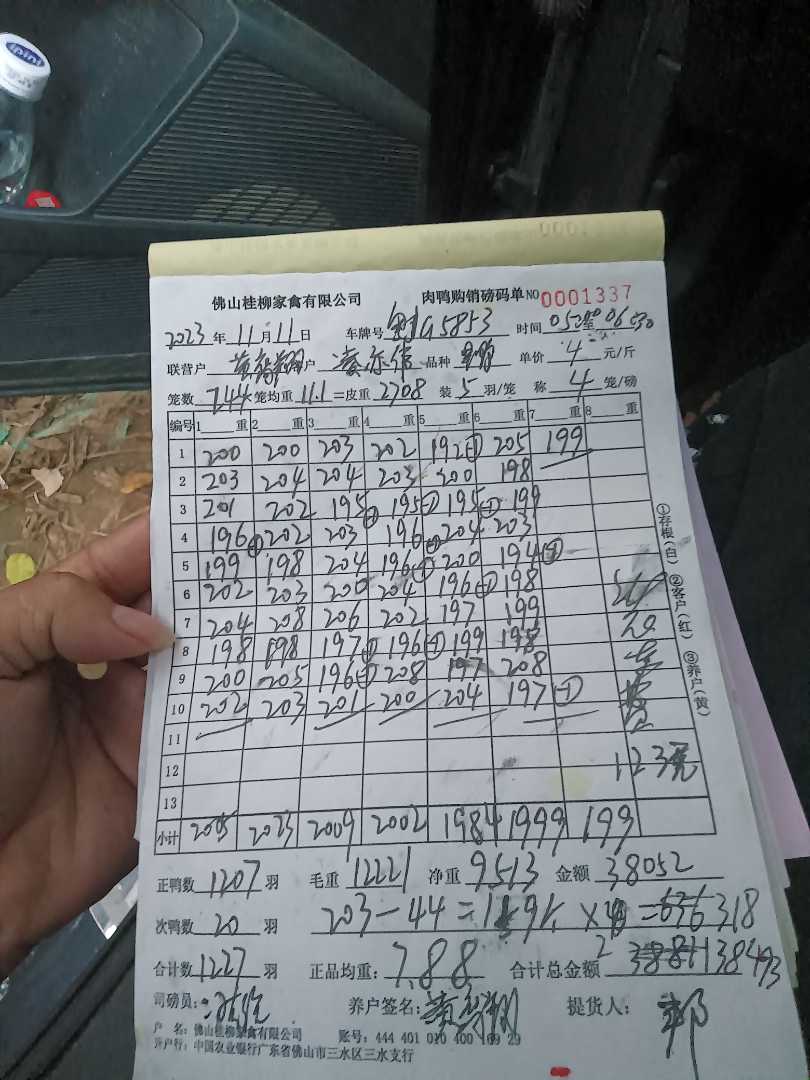 佛山桂柳家禽有限公司 肉鸭购销磅码单 NO 0001337
2023年11月11日 车牌号 G5853 时间
联营户 户 品种 单价 4 元/斤
笼数 244 笼均重 11.1 =皮重 2708 装 5 羽/笼 称 4 笼/磅
编号 1 重 2 重 3 重 4 重 5 重 6 重 7 重 8 重
1 200 200 203 202 192 205 199
2 203 204 204 203 200 198
3 201 202 195 195 195 199
4 196 202 203 196 204 203
5 199 198 204 196 200 194
6 202 203 200 204 196 198
7 204 208 206 202 197 199
8 198 198 197 196 199 198
9 200 205 196 208 197 208
10 202 203 201 200 204 197
11
12 123元
13
小计 2005 2023 2009 2002 1984 1999 199
①存根(白) ②客户(红) ③养户(黄)
正鸭数 1207 羽 毛重 12221 净重 9513 金额 38052
次鸭数 20 羽 203-44= 318
合计数 1227 羽 正品均重: 7.88 合计总金额
司磅员: 养户签名: 提货人:
户 名: 佛山桂柳家禽有限公司 账号: 444 401 010 400 169 29
开户行: 中国农业银行广东省佛山市三水区三水支行